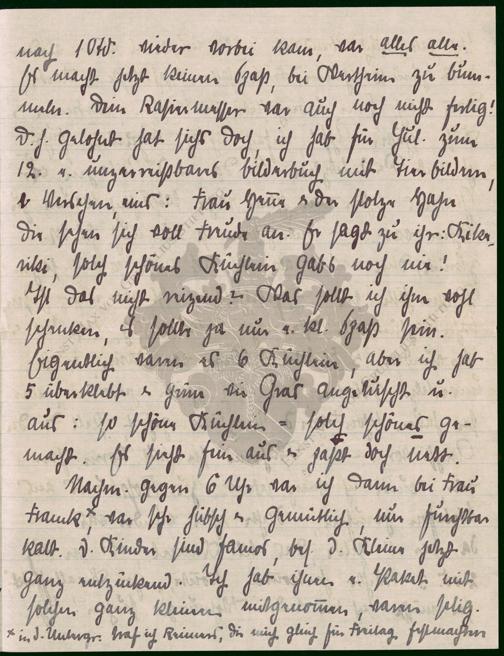 nach 1 Std. wieder vorbei kam, war alles alle.
Es macht jetzt keinen Spaß, bei Wertheim zu bum-
meln. Dein Rasiermesser war auch noch nicht fertig!
D.h. gelohnt hat sichs doch, ich hab für Jul. zum
12. e. unzerreißbares bilderbuch mit Tierbildern,
& Verschen, eins: Frau Henne & der stolze Hahn
die sehen sich voll Freude an. Er sagt zu ihr: Kike-
riki, solch schönes Küchlein gabs noch nie!
Ist das nicht reizend? Was sollt ich ihm wohl
schenken, es sollte ja nur e. kl. Spaß sein.
Eigentlich waren es 6 Küchlein, aber ich hab
5 überklebt & grün wie Gras angetuscht u.
aus: so schöne Küchlein = solch schönes ge-
macht. Es sieht fein aus & paßt doch nett.
Nachm. gegen 6 Uhr war ich dann bei Frau
Franck x, war sehr hübsch & gemütlich, nur furchtbar
kalt. D. Kinder sind famos, bes. d. Kleine jetzt
ganz entzückend. Ich hab ihnen e. Paket mit
solchen ganz kleinen mitgenommen, waren selig.
x in d. Untergr. traf ich Reimers, die mich gleich für Freitag festmachten